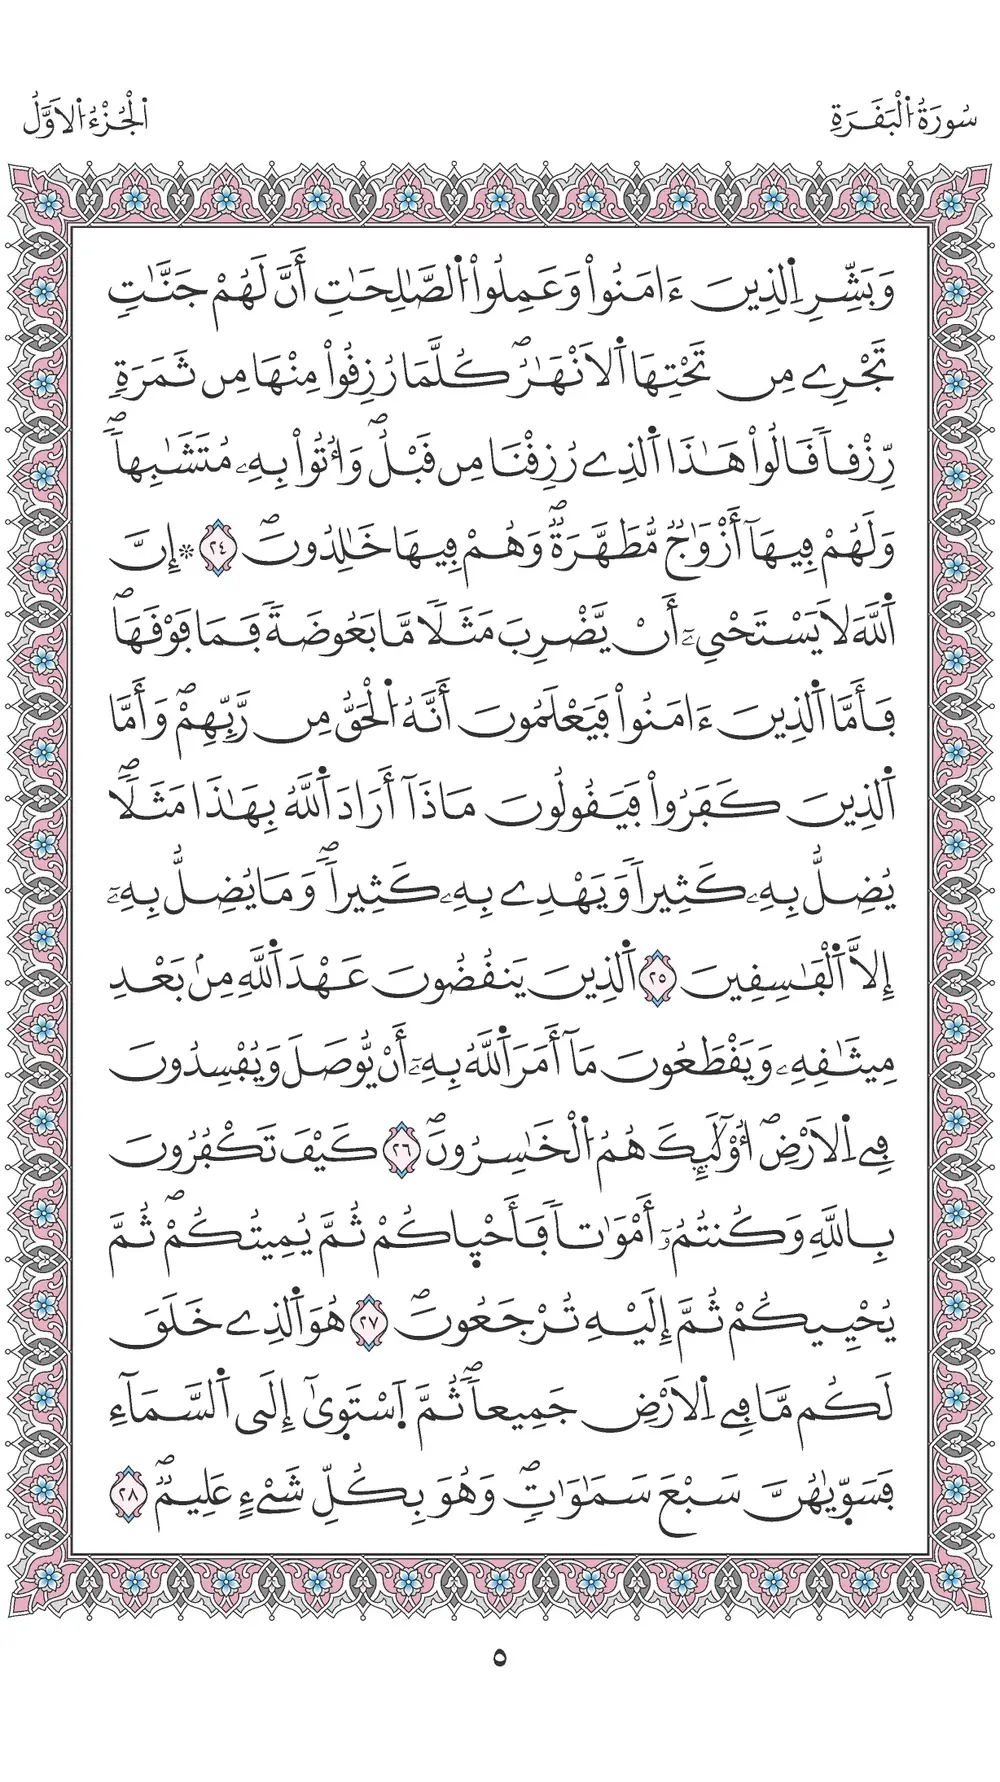 سُورَةُ اُ۬لْبَقَرَةِ
اَ۬لْجُزْءُ اُ۬لَاوَّلُ
وَبَشِّرِ اِ۬لذِينَ ءَامَنُواْ وَعَمِلُواْ اُ۬لصَّٰلِحَٰتِ أَنَّ لَهُمْ جَنَّٰتٖ
تَجْرِے مِن تَحْتِهَا اَ۬لَانْهَٰرُۖ كُلَّمَا رُزِقُواْ مِنْهَا مِن ثَمَرَةٖ
رِّزْقاٗ قَالُواْ هَٰذَا اَ۬لذِے رُزِقْنَا مِن قَبْلُۖ وَأُتُواْ بِهِۦ مُتَشَٰبِهاٗۖ
وَلَهُمْ فِيهَآ أَزْوَٰجٞ مُّطَهَّرَةٞۖ وَهُمْ فِيهَا خَٰلِدُونَۖ ٢٤ ۞ إِنَّ
اَ۬للَّهَ لَا يَسْتَحْيِۦٓ أَنْ يَّضْرِبَ مَثَلاٗ مَّا بَعُوضَةٗ فَمَا فَوْقَهَاۖ
فَأَمَّا اَ۬لذِينَ ءَامَنُواْ فَيَعْلَمُونَ أَنَّهُ اُ۬لْحَقُّ مِن رَّبِّهِمْۖ وَأَمَّا
اَ۬لذِينَ كَفَرُواْ فَيَقُولُونَ مَاذَآ أَرَادَ اَ۬للَّهُ بِهَٰذَا مَثَلاٗۖ
يُضِلُّ بِهِۦ كَثِيراٗ وَيَهْدِے بِهِۦ كَثِيراٗۖ وَمَا يُضِلُّ بِهِۦٓ
إِلَّا اَ۬لْفَٰسِقِينَ ٢٥ اَ۬لذِينَ يَنقُضُونَ عَهْدَ اَ۬للَّهِ مِنۢ بَعْدِ
مِيثَٰقِهِۦ وَيَقْطَعُونَ مَآ أَمَرَ اَ۬للَّهُ بِهِۦٓ أَنْ يُّوصَلَ وَيُفْسِدُونَ
فِے اِ۬لَارْضِۖ أُوْلَٰٓئِكَ هُمُ اُ۬لْخَٰسِرُونَۖ ٢٦ كَيْفَ تَكْفُرُونَ
بِاللَّهِ وَكُنتُمُۥٓ أَمْوَٰتاٗ فَأَحْيٰاكُمْ ثُمَّ يُمِيتُكُمْۖ ثُمَّ
يُحْيِيكُمْ ثُمَّ إِلَيْهِ تُرْجَعُونَۖ ٢٧ هُوَ اَ۬لذِے خَلَقَ
لَكُم مَّا فِے اِ۬لَارْضِ جَمِيعاٗۖ ثُمَّ اَ۪سْتَوٰىٓ إِلَى اَ۬لسَّمَآءِ
فَسَوّٰىٰهُنَّ سَبْعَ سَمَٰوَٰتٖۖ وَهُوَ بِكُلِّ شَےْءٍ عَلِيمٞۖ ٢٨
٥